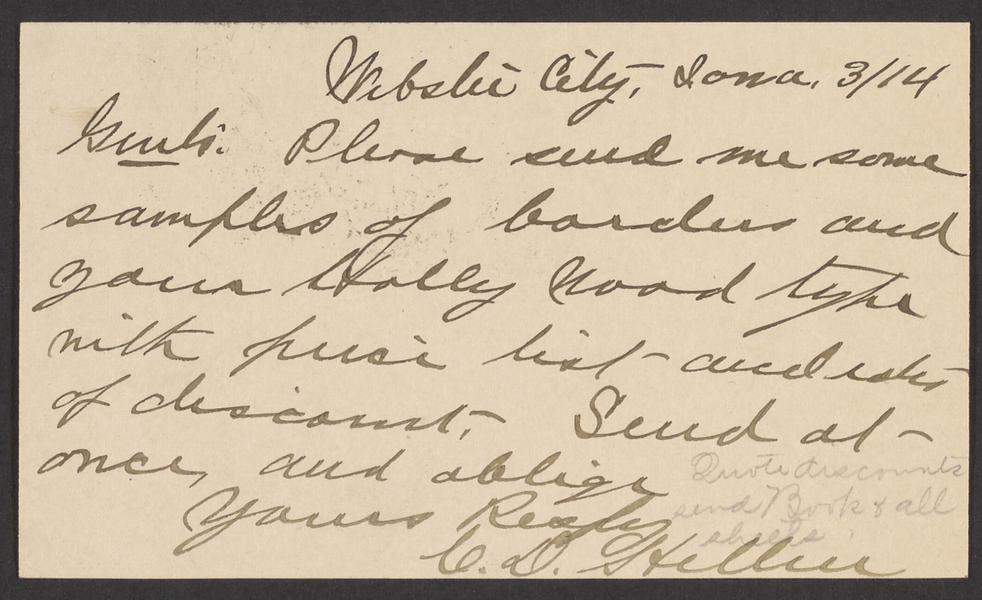 Webster City, Iowa, 3/14
Gents: Please send me some
samples of borders and
your Holly Wood type
with price list and rates
of discount. Send at
once, and oblige
Yours Respfy
C. D. Hellen
Quote discounts
send Book & all
sheets